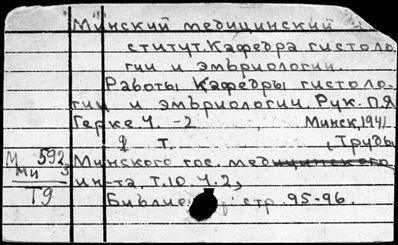 Минский медицинский
ститут. Кафедра гистоло
гии и эмбриологии.
Работы Кафедры гистоло-
гии и эмбриологии. Рук. П.Я
Герке. Ч. -2
Минск, 1941
2 т. (Труды
М 592 Минского гос. мединицинского
ми 3 ин-та. Т.10 Ч.2,
Т9 Библиогр: стр. 95-96.